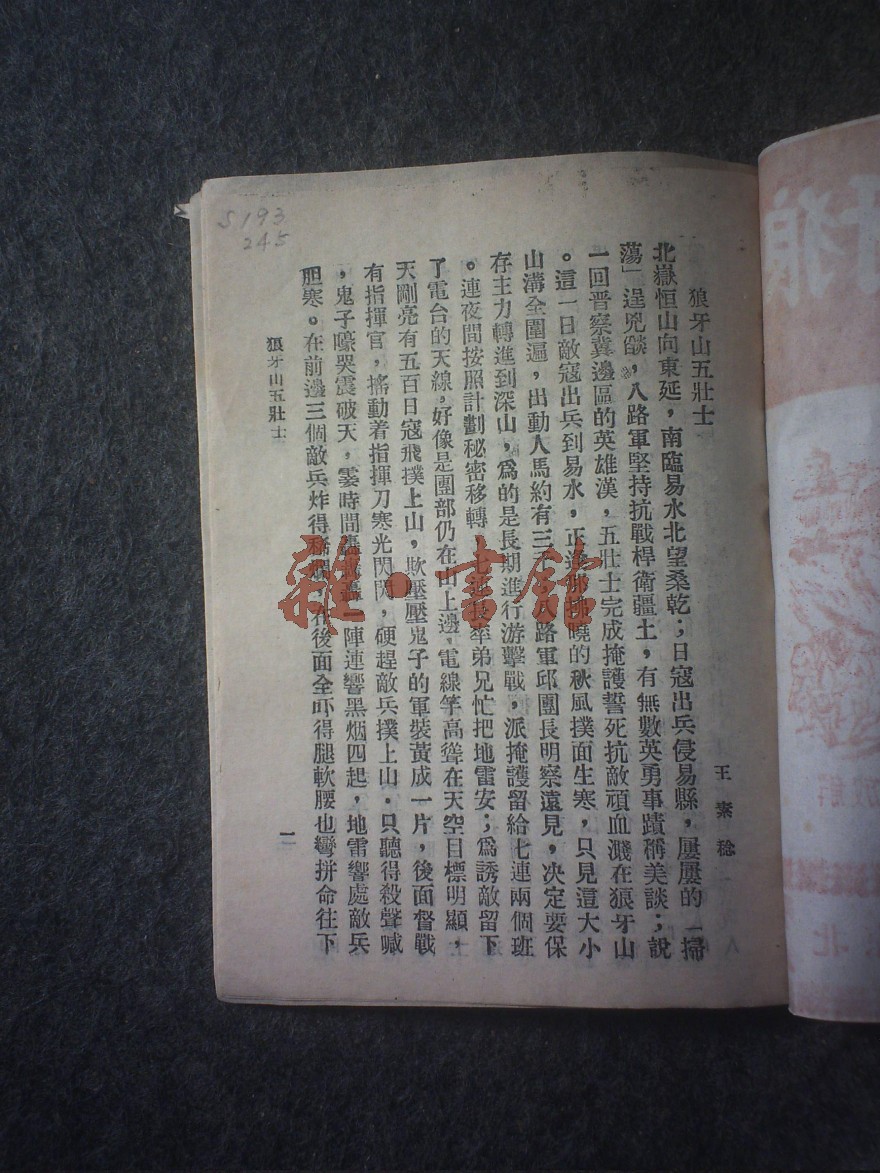 狼牙山五壯士
王素稔
北嶽恒山向東延，南臨易水北望桑乾；日寇出兵侵易縣，屢屢的「掃
蕩」逞兇燄，八路軍堅持抗戰桿衛疆土，有無數英勇事蹟稱美談；說
一回晋察冀邊區的英雄漢，五壯士完成掩護誓死抗敵頑血濺在狼牙山
。這一日敵寇出兵到易水，正逢那拂曉的秋風撲面生寒，只見這大小
山溝全圍遍，出動人馬約有三千，八路軍邱團長明察遠見，决定要保
存主力轉進到深山，爲的是長期進行游擊戰，派掩護留給七連兩個班
。連夜間按照計劃秘密移轉，七連長率弟兄忙把地雷安；爲誘敵留下
了電台的天線，好像是團部仍在山上邊，電線竿高聳在天空目標明顯，
天剛亮有五百日寇飛撲上山，欺壓壓鬼子的軍裝黃成一片，後面督戰
有指揮官，搖動着指揮刀寒光閃閃，硬趕敵兵撲上山．只聽得殺聲喊
，鬼子嚎哭震破天，霎時間轟轟轟一陣連響黑烟四起，地雷響處敵兵
胆寒。在前邊三個敵兵炸得稀爛，在後面全吓得腿軟腰也彎拼命往下
狼牙山五壯士
一
S193
245
雜·書館